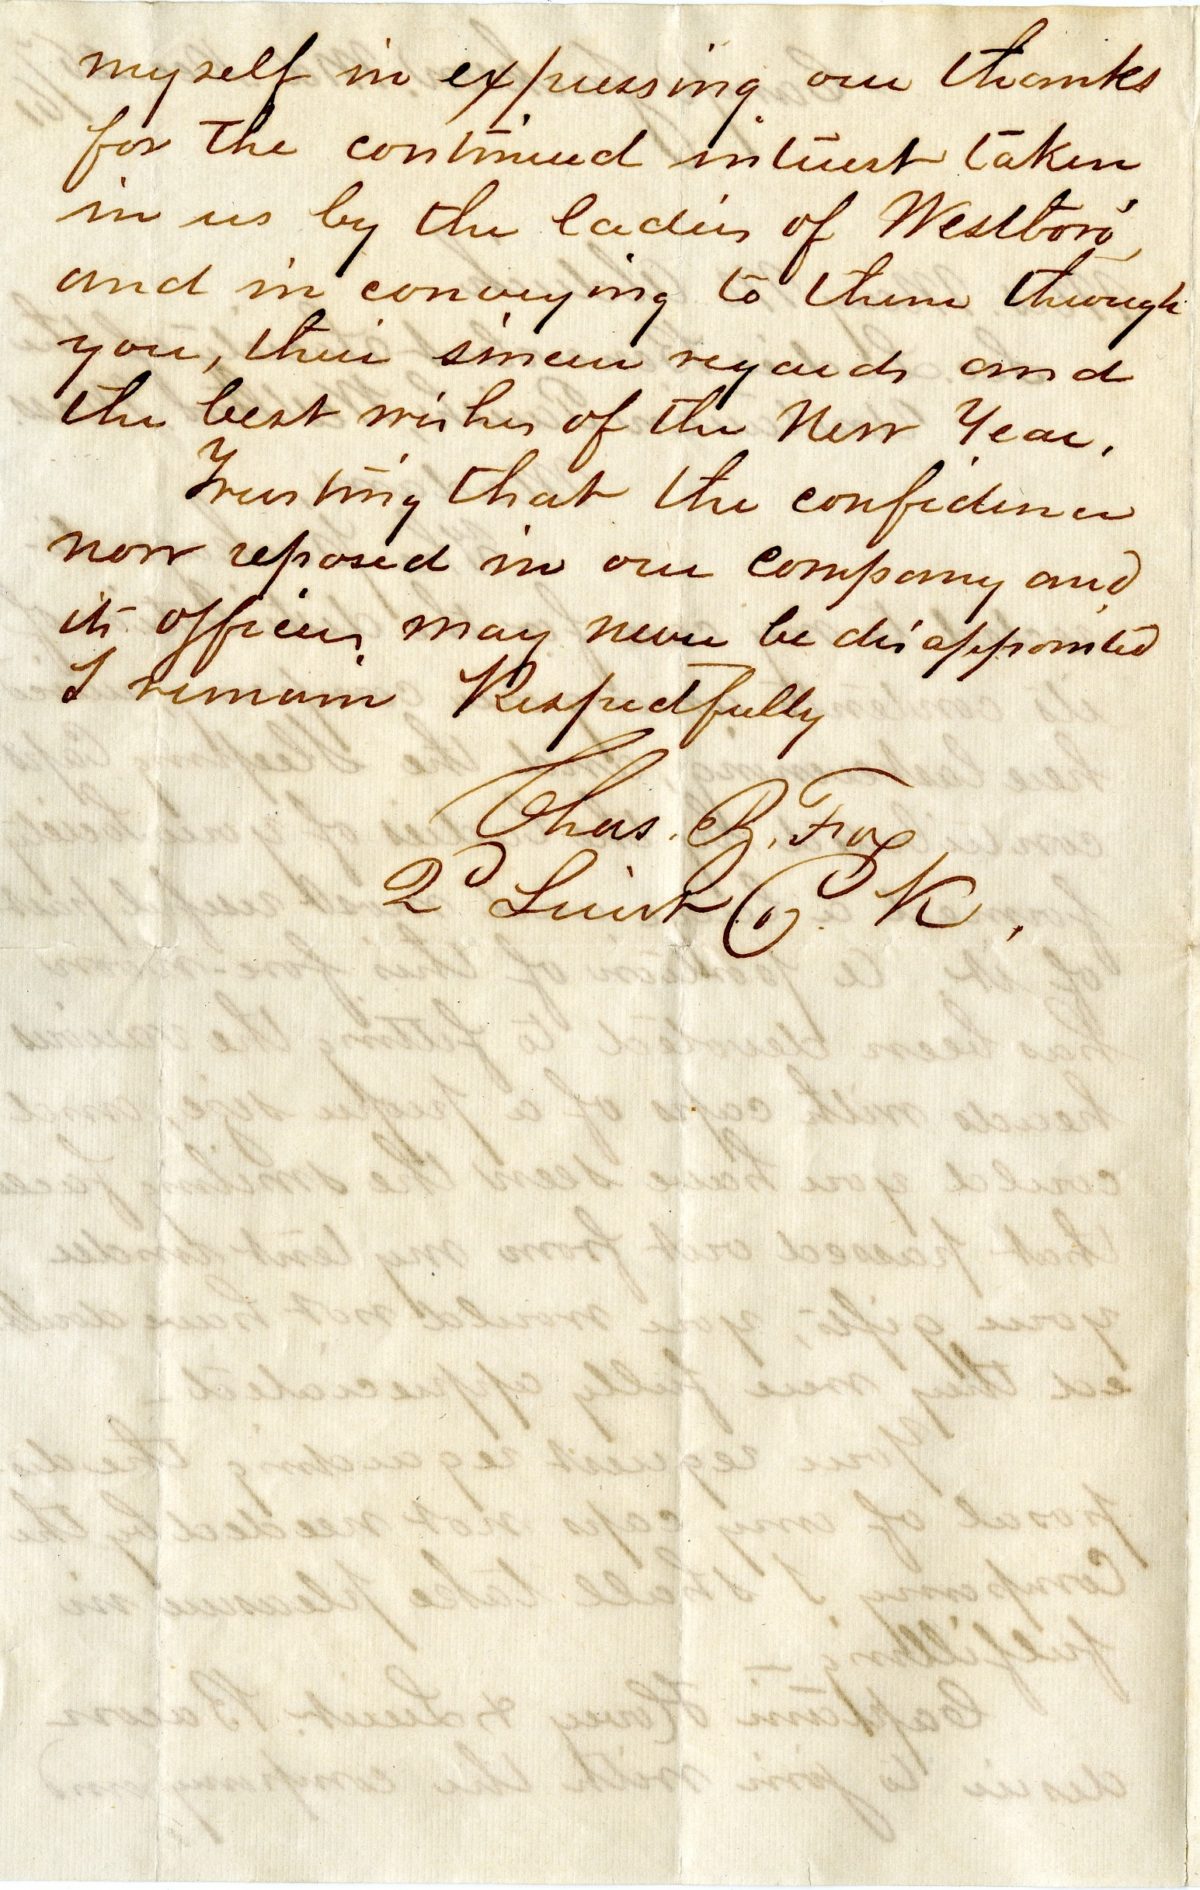 myself in expressing our thanks
for the continued interest taken
in us by the ladies of Westboro'
and in conveying to them through
you, their sincere regards and
the best wishes of the New Year.
Trusting that the confidence
now reposed in our company and
its officers may never be disappointed
I remain Respectfully
Chas. B. Fox
2d Lieut Co. K.